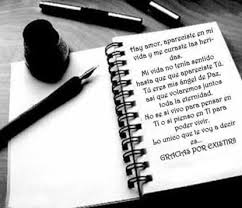 Hay amor, apareciste en mi
vida y me curaste las heri-
das.
Mi vida no tenía sentido
hasta que que apareciste Tú.
Tú eres mis ángel de Paz,
asi que volaremos juntos
toda la eternidad.
No se si vivo para pensar en
Ti o si pienso en Ti para
poder vivir.
Lo unico que te voy a decir
es...
GRACIAS POR EXISTIR!